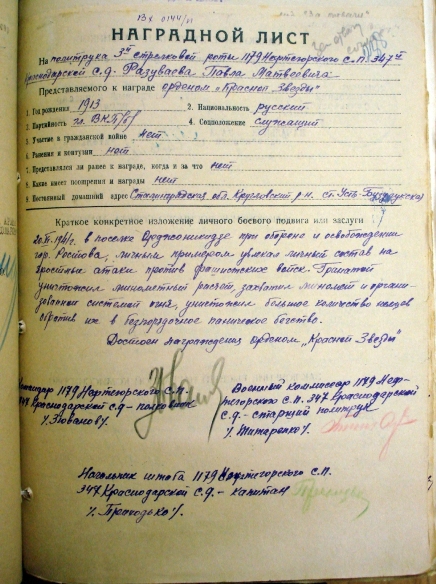 НАГРАДНОЙ ЛИСТ
На политрука 3й стрелковой роты 1179 Нефтегорского С.П. 347й
Краснодарской С.Д. Разуваева Павла Матвеевича
Представляемого к награде орденом „Красная Звезда"
1. Год рождения 1913 2. Национальность русский
3. Партийность чл. ВКП/б/ 4. Соцположение служащий
5. Участие в гражданской войне нет
6. Ранения и контузии нет
7. Представлялся ли ранее к награде, когда и за что нет
8. Какие имеет поощрения и награды нет
9. Постоянный домашний адрес Сталинградская обл. р-н. ст. Усть-
Краткое конкретное изложение личного боевого подвига или заслуги
1941г. в поселке Орджоникидзе при обороне и освобождении
гор. Ростова, личным примером увлекал личный состав на
яростные атаки против фашистских войск. Гранатой
уничтожил минометный расчет, захватил миномет и органи-
зованной системой огня, уничтожил большое количество немцев
обратив их в беспорядочное паническое бегство.
Достоин награждения орденом „Красной Звезды"
Командир 1179 Нефтегорского С.П.
347 Краснодарской С.Д.-
Военный комиссар 1179 Неф-
тегорского С.П. 347 Краснодарской
С.Д.-старший политрук
/. Титаренко/.
Начальник штаба 1179 Нефтегорского С.П.
347 Краснодарской С.Д.- капитан
/. Приходько/.